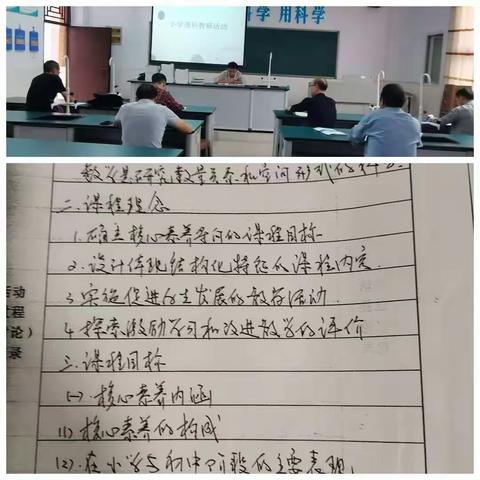 学科学 用科学
小学理科教研活动
数学是研究数量关系和空间形式的科学.
二.课程理念
1.确立核心素养导向的课程目标
2.设计体现结构化特征的课程内容.
3.实施促进学生发展的教学活动.
4.探索激励学习和改进教学的评价
三.课程目标
(一).核心素养内涵
(1)核心素养的构成
(2).在小学与初中阶段的主要表现,
活动
过程
论)
录